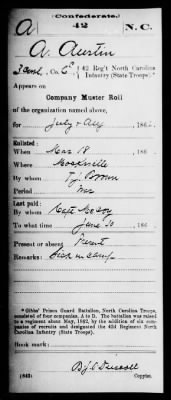 (Confederate.)
A 42 N.C.
A. Austin
Co. C*, 42 Reg't North Carolina
Infantry (State Troops).*
Appears on
Company Muster Roll
of the organization named above,
for July & Aug, 186
Enlisted:
When Mar 18, 186
Where Mocksville
By whom T.J. Brown
Period War
Last paid:
By whom Capt
To what time June 30, 186
Present or absent Present
Remarks: Sick in camp
* Gibbs' Prison Guard Battalion, North Carolina Troops,
consisted of four companies, A to D. The battalion was raised
to a regiment about May, 1862, by the addition of six com-
panies of recruits and designated the 42d Regiment North
Carolina Infantry (State Troops).
Book mark:
(642)
Copyist.